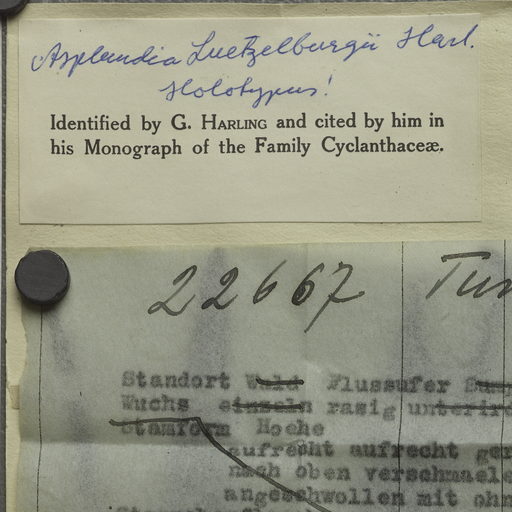 Asplundia Luetzelburgii Harl.
Holotypus!
Identified by G. HARLING and cited by him in
his Monograph of the Family Cyclanthaceæ.
22667 Tur
Standort Wald Flussufer
Wuchs einzeln rasig unterird
Stamform Hoehe
aufrecht aufrecht ger
nach oben verschmaele
angeschwollen mit ohn